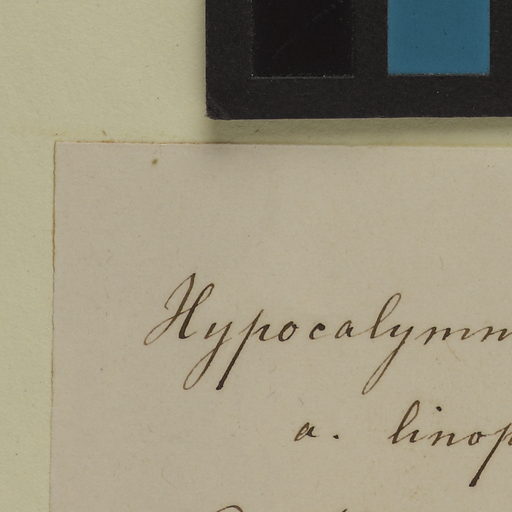 Hypocalymn
a. linop